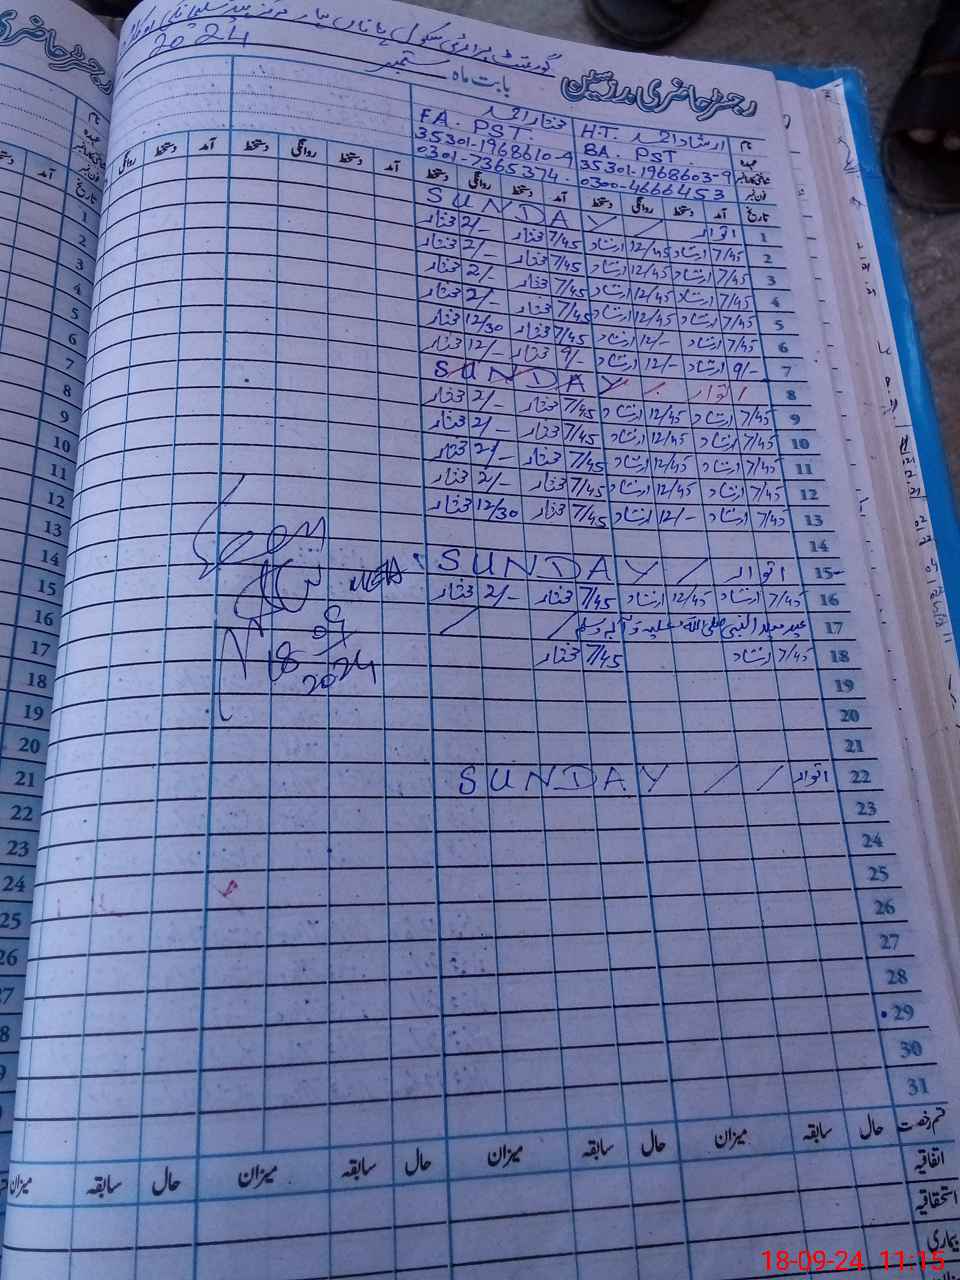 رجسٹر حاضری مدرسین
گورنمنٹ پرائمری سکول
2024
بابت ماہ ستمبر
نام ارشاد احمد H.T. مختار احمد
عہدہ BA. PST. FA. PST.
شناختی کارڈ نمبر 35301-1968603-9 35301-1968610-9
فون نمبر 0300-4666453 0301-7365374
تاریخ آمد دستخط روانگی دستخط آمد دستخط روانگی دستخط آمد دستخط روانگی دستخط آمد دستخط روانگی
1 اتوار / / SUNDAY
2 7/45 ارشاد 12/45 ارشاد 7/45 مختار 2/- مختار
3 7/45 ارشاد 12/45 ارشاد 7/45 مختار 2/- مختار
4 7/45 ارشاد 12/45 ارشاد 7/45 مختار 2/- مختار
5 7/45 ارشاد 12/45 ارشاد 7/45 مختار 2/- مختار
6 7/45 ارشاد 12/- ارشاد 7/45 مختار 12/30 مختار
7 9/- ارشاد 12/- ارشاد 9/- مختار 12/- مختار
8 اتوار / SUNDAY
9 7/45 ارشاد 12/45 ارشاد 7/45 مختار 2/- مختار
10 7/45 ارشاد 12/45 ارشاد 7/45 مختار 2/- مختار
11 7/45 ارشاد 12/45 ارشاد 7/45 مختار 2/- مختار
12 7/45 ارشاد 12/45 ارشاد 7/45 مختار 2/- مختار
13 7/45 ارشاد 12/- ارشاد 7/45 مختار 12/30 مختار
14
15 اتوار / SUNDAY
16 7/45 ارشاد 12/45 ارشاد 7/45 مختار 2/- مختار
17 عید میلاد النبی صلی اللہ علیہ وآلہ وسلم / /
18 7/45 ارشاد 7/45 مختار
19
20
21
22 اتوار / / SUNDAY
23
24
25
26
27
28
29
30
31
Seen
18
09
2024
قسم رخصت حال سابقہ میزان حال سابقہ میزان حال سابقہ میزان حال سابقہ میزان
اتفاقیہ
استحقاقیہ
بیماری
18-09-24 11:15